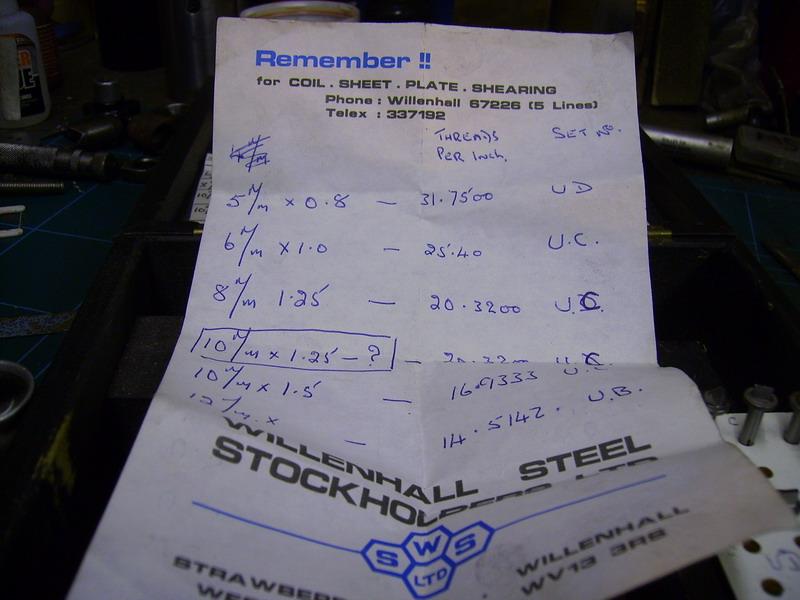 Remember !!
for COIL . SHEET . PLATE . SHEARING
Phone : Willenhall 67226 (5 Lines)
Telex : 337192
THREADS PER Inch. SET No.
5 M/m × 0.8 — 31.7500 UD
6 M/m × 1.0 — 25.40 U.C.
8 M/m 1.25 — 20.3200 U.C.
10 M/m × 1.25 — ? —
10 M/m × 1.5 — 16.9333
— 14.5142. U.B.
WILLENHALL STEEL
STOCKHOLDERS LTD
SWS
LTD
WILLENHALL
WV13 3RS